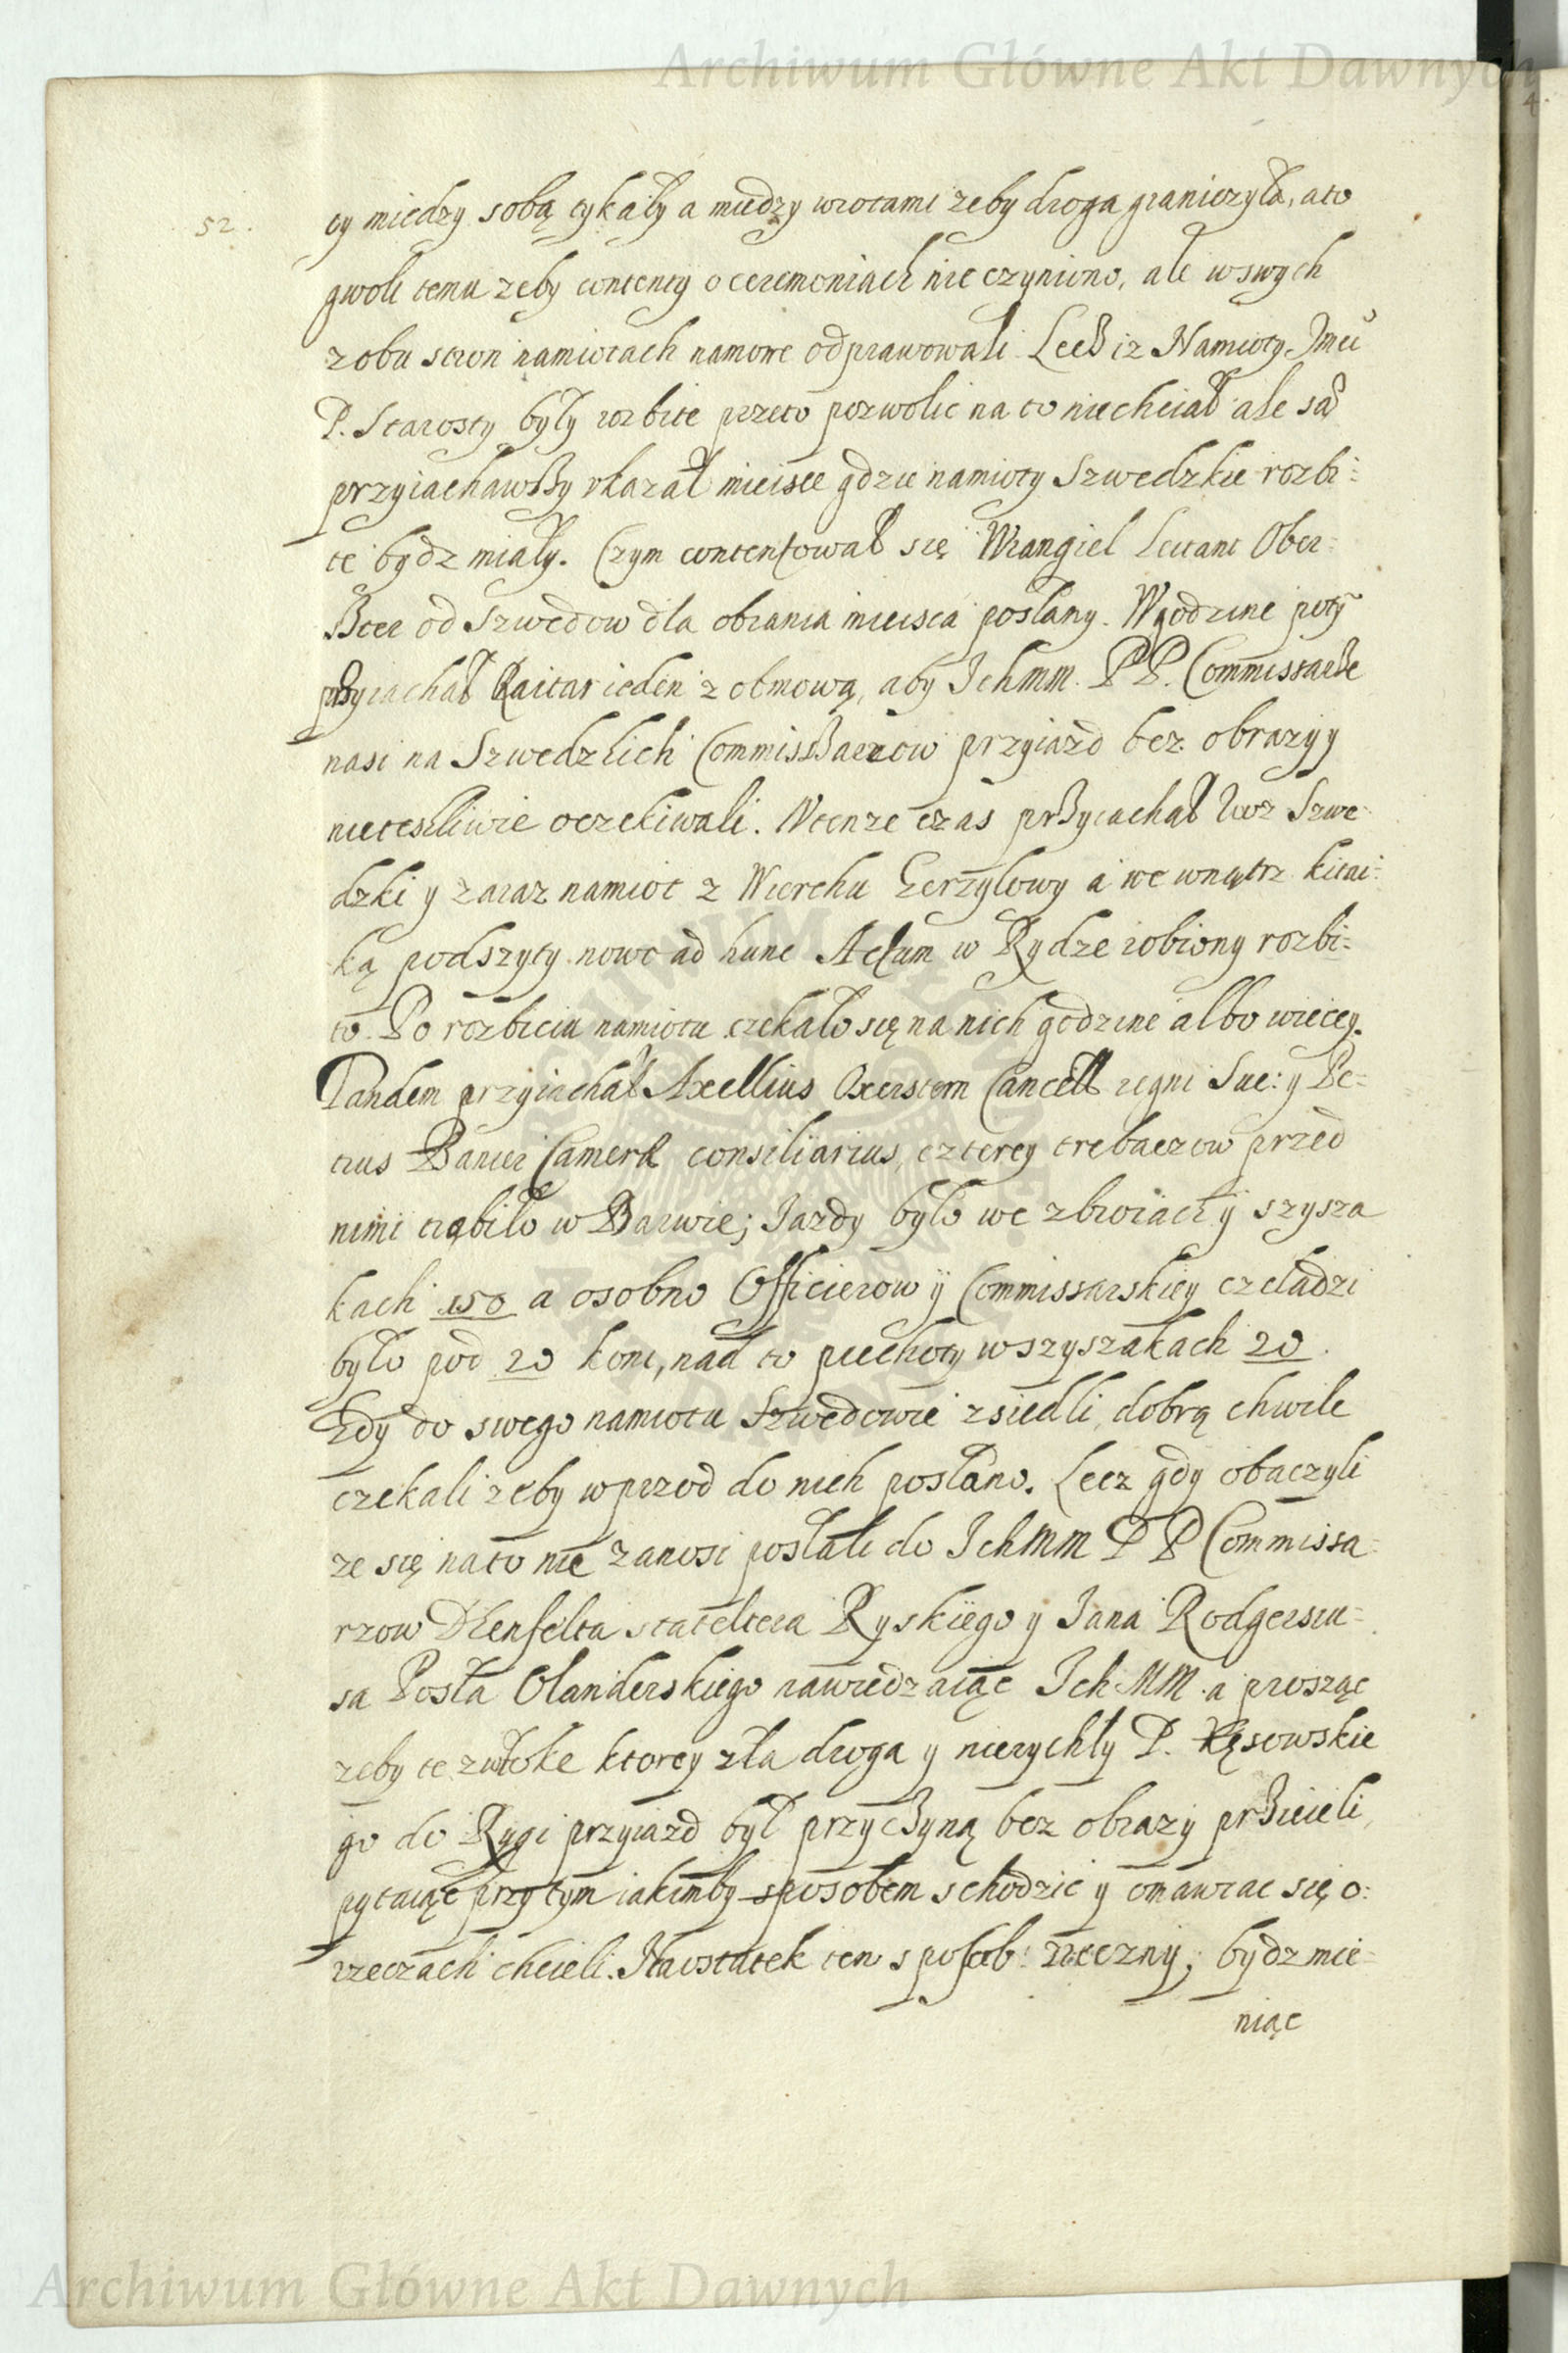 Archiwum Główne Akt Dawnych
52.
ty miedzy sobą tykały a miedzy wrotami zeby droga graniczyła, a to
gwoli temu zeby contenty o ceremoniach nie czyniono, ale w swych
z obu stron namiotach namowe odprawowali. Lecß iz Namioty Jmci
P. Starosty były rozbite przeto pozwolic na to niechciał ale sā
przyiachawßy vkazał mieisce gdzie namioty Szwedzkie rozbi=
te bydz miały. Czym contentował się Wrangiel Leitant Ober=
ßter od Szwedow dla obrania mieisca posłany. W godzine potÿ
prßyiachał Raitar ieden z obmową, aby Ichmm. PP. Commissarße
nasi na Szwedzkich Commissßarzow przyiazd bez obrazÿ y
nieteskliwie oczekiwali. Wtenze czas prßyiachał Woz Szwe-
dzki y zaraz namiot z Wierchu Gerzylowy a we wnątrz kitai=
ką podszyty nowo ad hunc Actum w Rydze robiony rozbi=
to. Po rozbiciu namiotu czekało się na nich godzine albo wiecey.
Tandem przyiachał Axellius Oxerstern Cancell regni Sue: y Pe=
trus Banier Camerae consiliarius, czterey trebaczow przed
nimi trąbiło w Barwie; Jazdy było we zbroiach ÿ szysza
kach 150 a osobno Officierow ÿ Commissarskiey czeladzi
było pod 20 koni, nad to piechoty w szyszakach 20.
Gdy do swego namiotu Szwedowie zsiedli, dobrą chwile
czekali zeby wprzod do nich posłano. Lecz gdy obaczyli
ze się na to nie zanosi posłali do Ichmm P P Commissa=
rzow Ulenfelta stateltera Ryskiego y Jana Rodgersiu=
sa Posła Olanderskiego nawiedzaiąc Ich MM. a prosząc
zeby te zwłoke ktorey zła droga y nierychły P. Kęsowskie
go do Rygi przyiazd był przycßyną bez obrazÿ prßieieli,
pytaiąc przy tym iakimby sposobem schodzic y omawiac się o:
rzeczach chcieli. Naostatek ten sposob: rzeczny; bydz mie=
niąc
Archiwum Główne Akt Dawnych